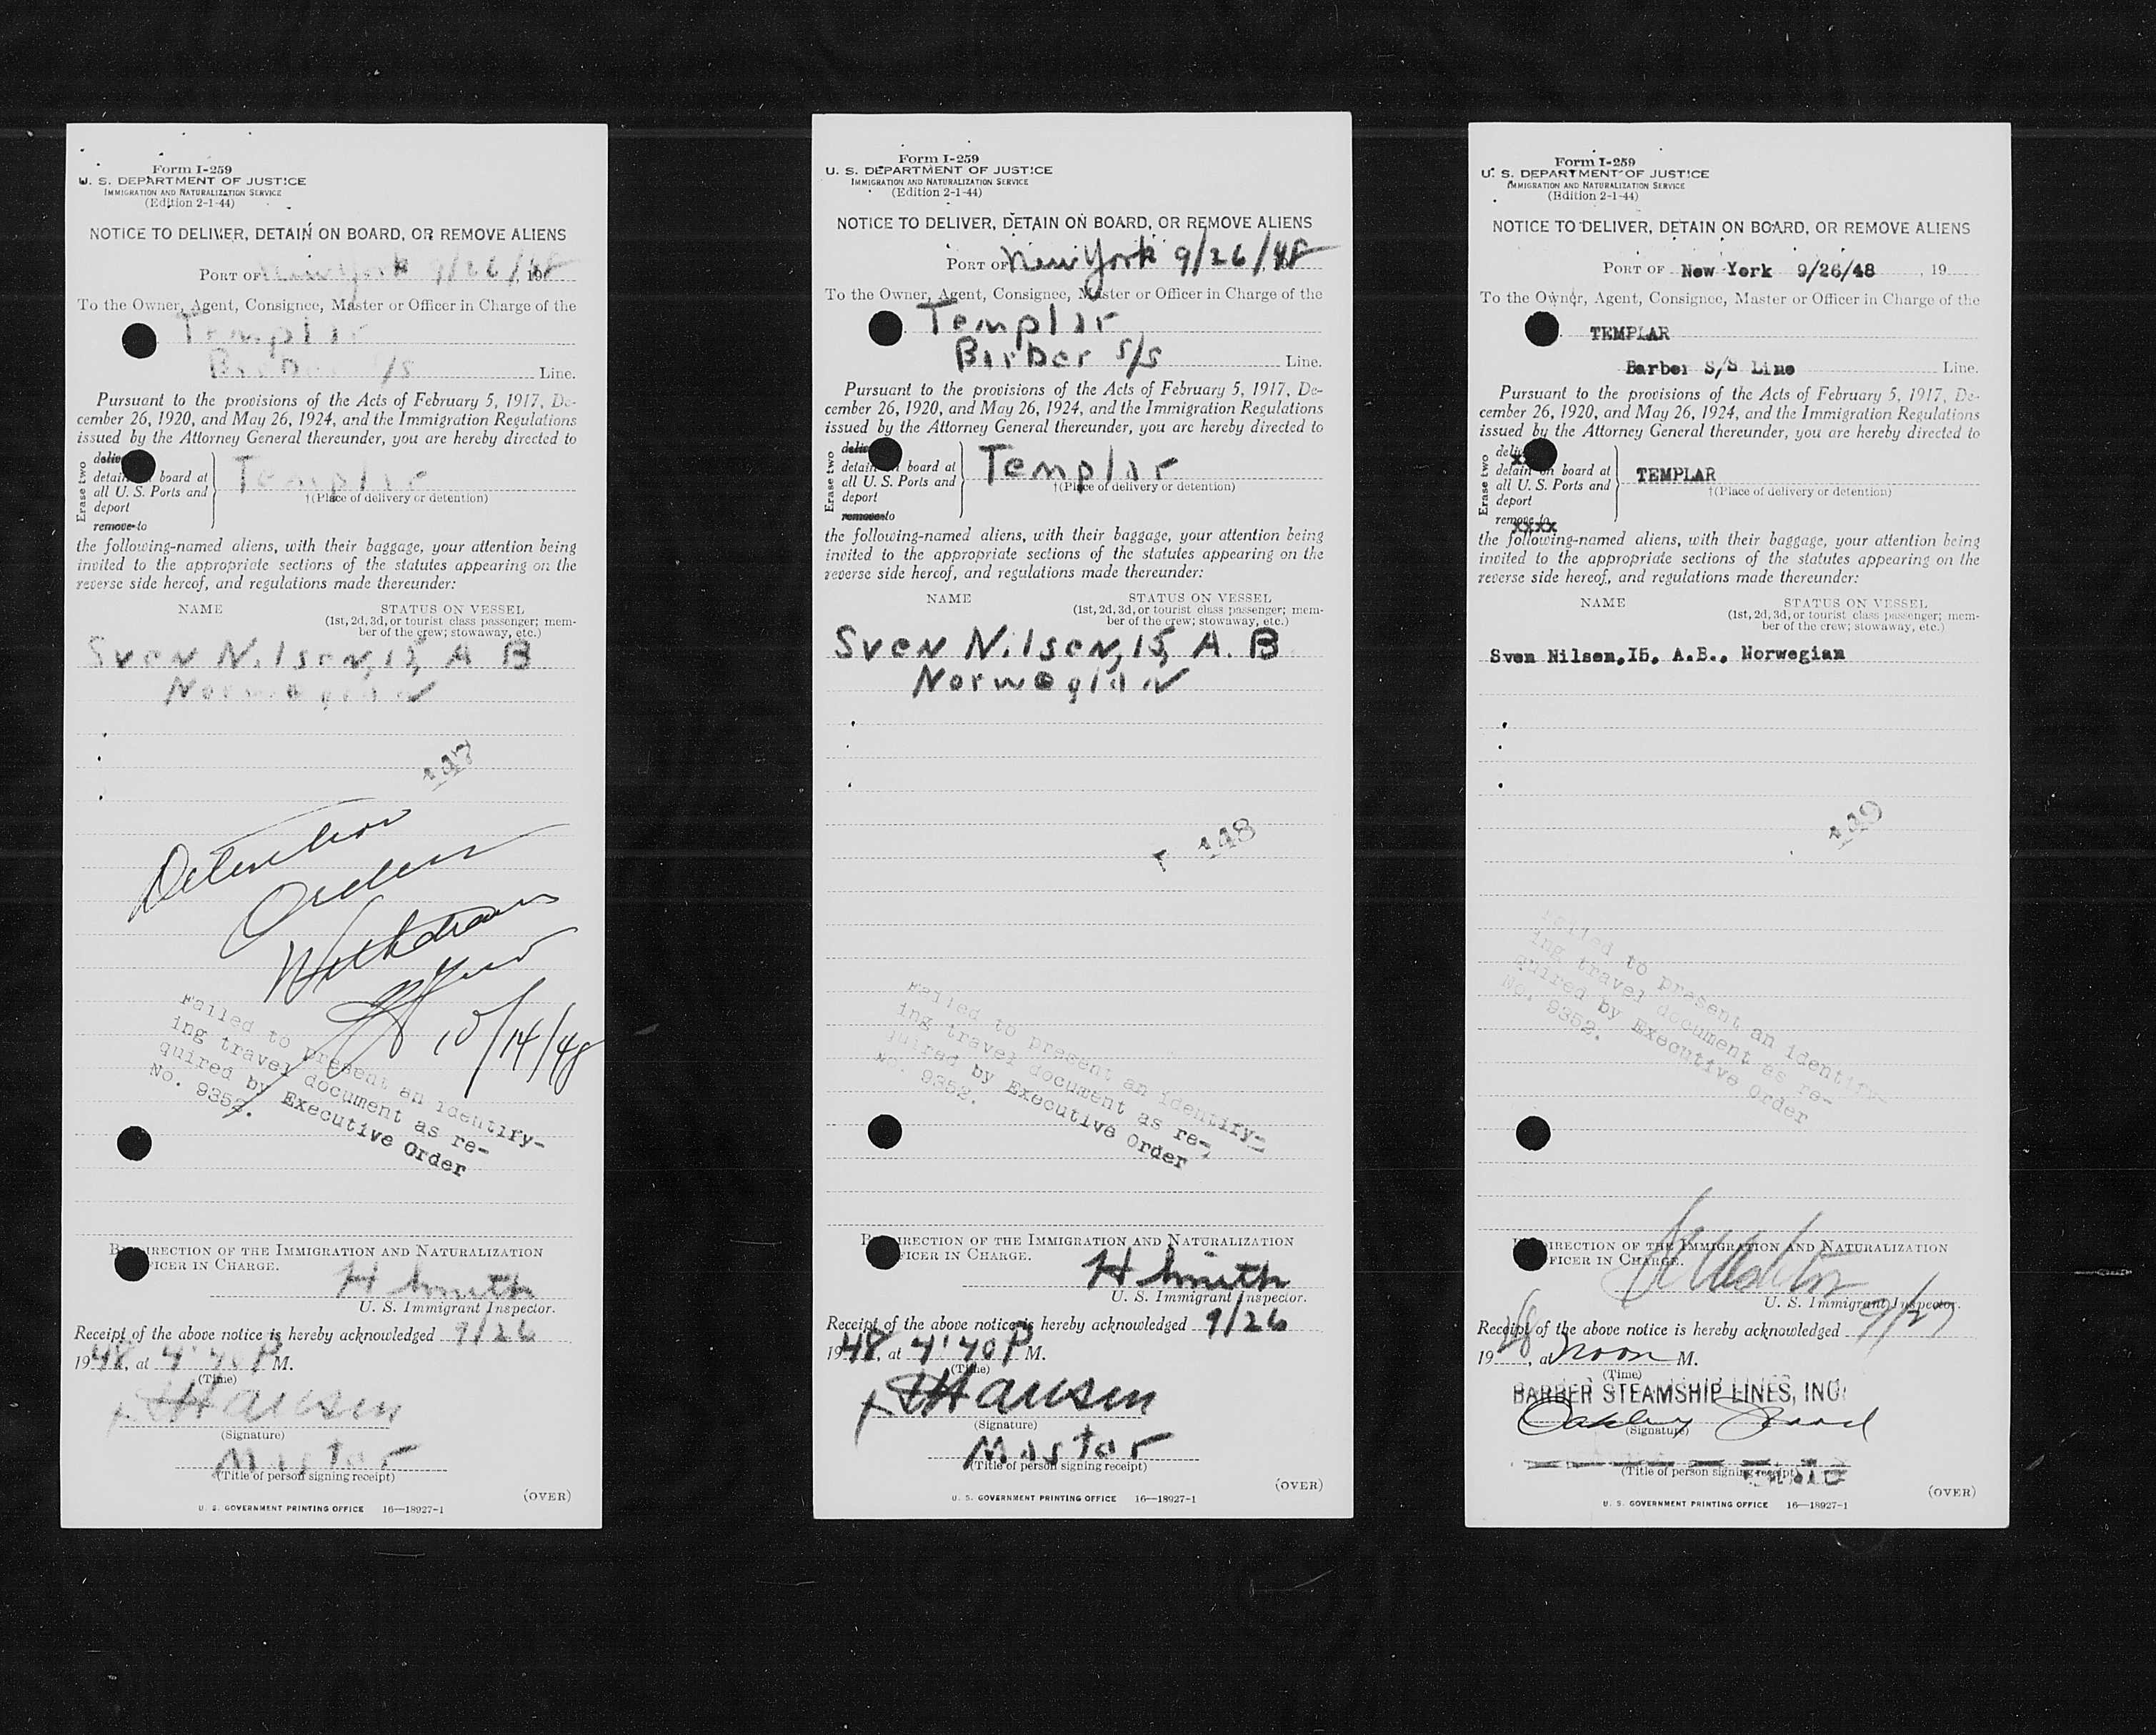 Form I-259
U. S. DEPARTMENT OF JUSTICE
IMMIGRATION AND NATURALIZATION SERVICE
(Edition 2-1-44)
NOTICE TO DELIVER, DETAIN ON BOARD, OR REMOVE ALIENS
PORT OF New York 9/26/48, 19
To the Owner, Agent, Consignee, Master or Officer in Charge of the
Templar
Barber S/S Line.
Pursuant to the provisions of the Acts of February 5, 1917, De-
cember 26, 1920, and May 26, 1924, and the Immigration Regulations
issued by the Attorney General thereunder, you are hereby directed to
Erase two
deliv
detain board at
all U. S. Ports and
deport
remove to
Templar
†(Place of delivery or detention)
the following-named aliens, with their baggage, your attention being
invited to the appropriate sections of the statutes appearing on the
reverse side hereof, and regulations made thereunder:
NAME STATUS ON VESSEL
(1st, 2d, 3d, or tourist class passenger; mem-
ber of the crew; stowaway, etc.)
Sven Nilsen, 15, A B
Norwegian
147
Detention
Order
Withdrawn
10/14/48
Failed to present an identify-
ing travel document as re-
quired by Executive Order
No. 9352.
BY DIRECTION OF THE IMMIGRATION AND NATURALIZATION
OFFICER IN CHARGE.
H Smith
U. S. Immigrant Inspector.
Receipt of the above notice is hereby acknowledged 9/26
1948, at 4:40 P M.
(Time)
x Hansen
(Signature)
Master
(Title of person signing receipt)
(OVER)
U. S. GOVERNMENT PRINTING OFFICE 16—18927-1
Form I-259
U. S. DEPARTMENT OF JUSTICE
IMMIGRATION AND NATURALIZATION SERVICE
(Edition 2-1-44)
NOTICE TO DELIVER, DETAIN ON BOARD, OR REMOVE ALIENS
PORT OF New York 9/26/48
To the Owner, Agent, Consignee, Master or Officer in Charge of the
Templar
Barber S/S Line.
Pursuant to the provisions of the Acts of February 5, 1917, De-
cember 26, 1920, and May 26, 1924, and the Immigration Regulations
issued by the Attorney General thereunder, you are hereby directed to
Erase two
deliv
detain on board at
all U. S. Ports and
deport
remove to
Templar
†(Place of delivery or detention)
the following-named aliens, with their baggage, your attention being
invited to the appropriate sections of the statutes appearing on the
reverse side hereof, and regulations made thereunder:
NAME STATUS ON VESSEL
(1st, 2d, 3d, or tourist class passenger; mem-
ber of the crew; stowaway, etc.)
Sven Nilsen, 15, A. B
Norwegian
148
Failed to present an identify-
ing travel document as re-
quired by Executive Order
No. 9352.
BY DIRECTION OF THE IMMIGRATION AND NATURALIZATION
OFFICER IN CHARGE.
H Smith
U. S. Immigrant Inspector.
Receipt of the above notice is hereby acknowledged 9/26
1948, at 4:40 P M.
(Time)
x Hansen
(Signature)
Master
(Title of person signing receipt)
(OVER)
U. S. GOVERNMENT PRINTING OFFICE 16—18927-1
Form I-259
U. S. DEPARTMENT OF JUSTICE
IMMIGRATION AND NATURALIZATION SERVICE
(Edition 2-1-44)
NOTICE TO DELIVER, DETAIN ON BOARD, OR REMOVE ALIENS
PORT OF New York 9/26/48, 19
To the Owner, Agent, Consignee, Master or Officer in Charge of the
TEMPLAR
Barber S/S Line Line.
Pursuant to the provisions of the Acts of February 5, 1917, De-
cember 26, 1920, and May 26, 1924, and the Immigration Regulations
issued by the Attorney General thereunder, you are hereby directed to
Erase two
deliv
detain on board at
all U. S. Ports and
deport
remove to
xxxx
TEMPLAR
†(Place of delivery or detention)
the following-named aliens, with their baggage, your attention being
invited to the appropriate sections of the statutes appearing on the
reverse side hereof, and regulations made thereunder:
NAME STATUS ON VESSEL
(1st, 2d, 3d, or tourist class passenger; mem-
ber of the crew; stowaway, etc.)
Sven Nilsen,I5, A.B., Norwegian
149
Failed to present an identify-
ing travel document as re-
quired by Executive Order
No. 9352.
BY DIRECTION OF THE IMMIGRATION AND NATURALIZATION
OFFICER IN CHARGE.
U. S. Immigrant Inspector.
Receipt of the above notice is hereby acknowledged 9/27
1948, at noon M.
(Time)
BARBER STEAMSHIP LINES, INC.
Oakley
(Signature)
(Title of person signing receipt)
(OVER)
U. S. GOVERNMENT PRINTING OFFICE 16—18927-1